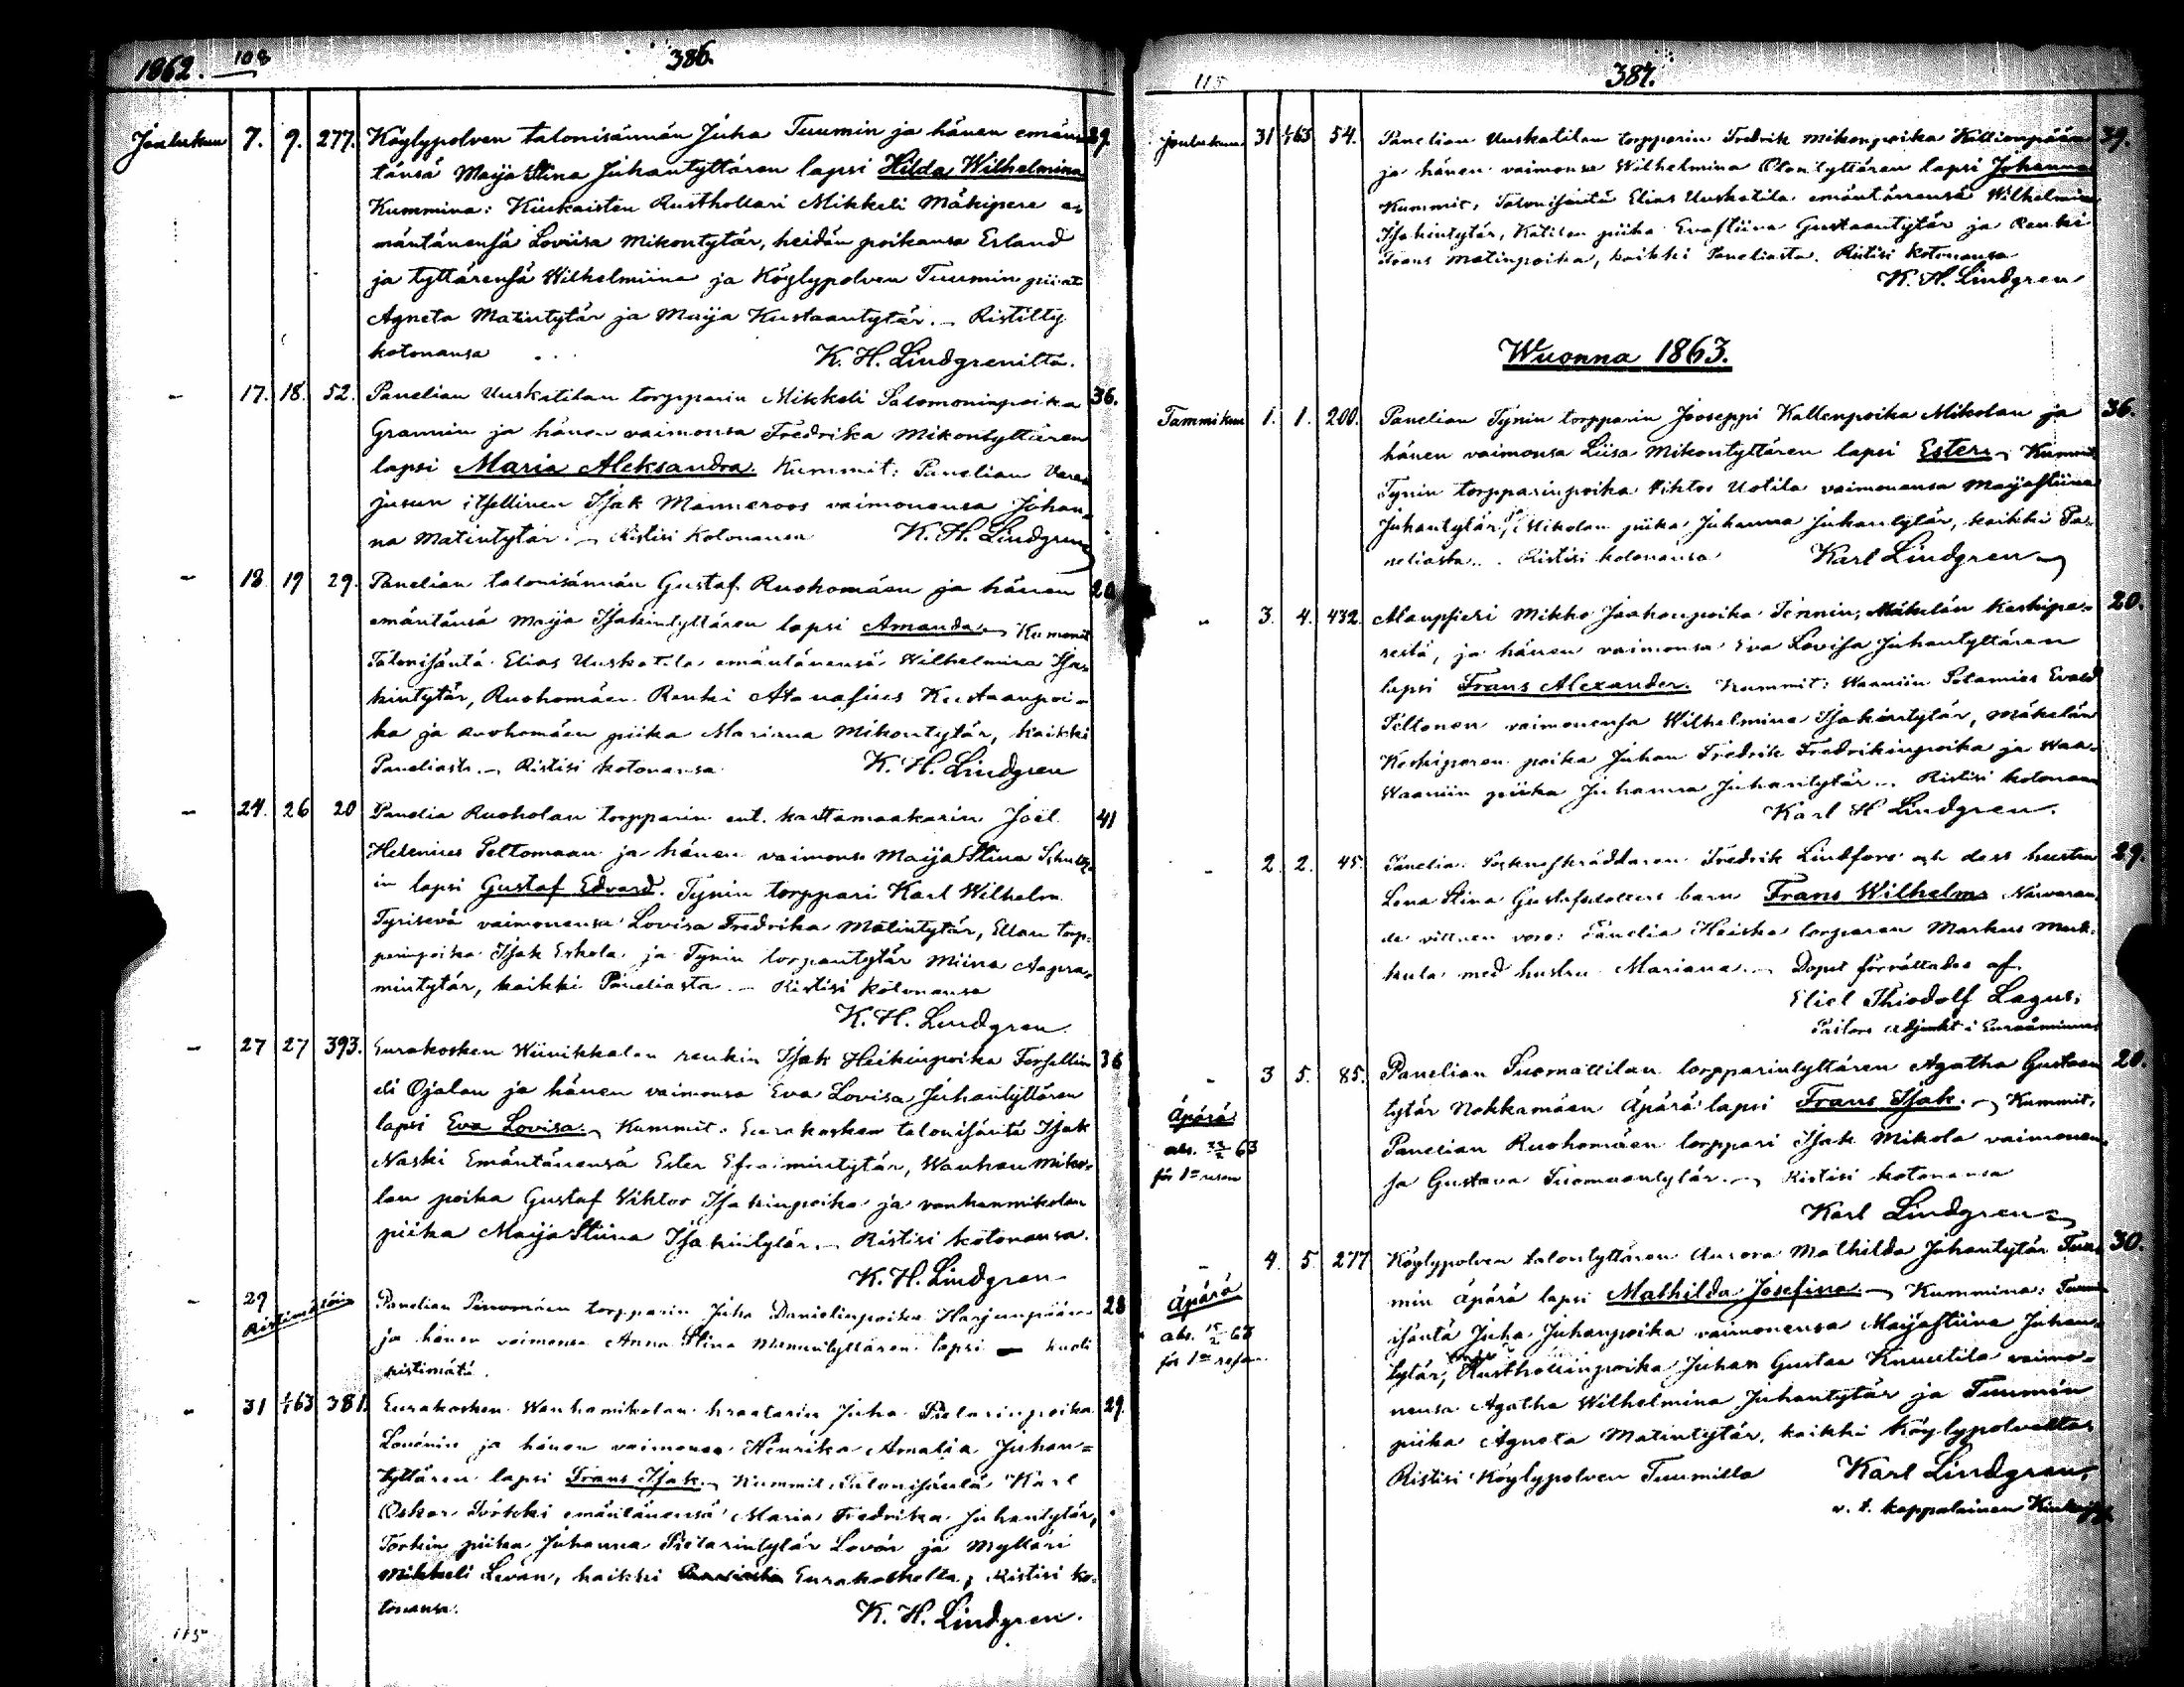 1862. 108 386.
Joulukuu 7. 9. 277. Köylypolven talonisännän Juha Tuumin ja hänen emän- 29.
tänsä Maija Stina Juhantyttären lapsi Hilda Wilhelmina
Kummina: Kiukaisten Rusthollari Mikkeli Mäkipere e-
mäntänensä Loviisa Mikontytär, heidän poikansa Erland
ja tyttärensä Wilhelmiina ja Köylypolven Tuumin piiat
Agneta Matintytär ja Maija Kustaantytär. – Ristitty
kotonansa K. H. Lindgreniltä.
– 17. 18. 52. Panelian Uuskatilan torpparin Mikkeli Salomoninpoika 36.
Grannin ja hänen vaimonsa Fredrika Mikontyttären
lapsi Maria Aleksandra. Kummit: Panelian
itsellinen Isak Manneroos vaimonensa Johan-
na Matintytär. – Ristisi kotonansa K. H. Lindgren
– 18 19 29. Panelian talonisännän Gustaf Ruohomäen ja hänen 20
emäntänsä Maija Isakintyttären lapsi Amanda. – Kummit
Talonisäntä Elias Uuskatila emäntänensä Wilhelmina Isa-
kintytär, Ruohomäen Renki Atanasius Kustaanpoi-
ka ja Ruohomäen piika Mariana Mikontytär, kaikki
Paneliasta. – Ristisi kotonansa K. H. Lindgren
– 24. 26 20 Panelia Ruoholan torpparin ent. karttamaakarin Joel 41
Helenius Peltomaan ja hänen vaimonsa Maija Stina
in lapsi Gustaf Edvard. Tynin torppari Karl Wilhelm
Tyrisevä vaimonensa Lovisa Fredrika Matintytär, Ellan torp-
parinpoika Isak Eskola ja Tynin torpantytär Miina Aapra-
mintytär, kaikki Paneliasta. – Ristisi kotonansa
K. H. Lindgren.
– 27 27 393. Eurakosken Wiinikkalan renkin Isak Heikinpoika Forsellin 36
eli Ojalan ja hänen vaimonsa Eva Lovisa Juhantyttären
lapsi Eva Lovisa. – Kummit. Eurakosken talonisäntä Isak
Naski Emäntänensä Ester Efraimintytär, Wanhan Miko-
lan poika Gustaf Viktor Isakinpoika ja vanhanmikolan
piika Maija Stiina Isakintytär. – Ristisi kotonansa.
K. H. Lindgren
– 29 Ristimätöin Panelian Pinomäen torpparin Juha Danielinpoika Harjunpään 28
ja hänen vaimonsa Anna Stina lapsi – kuoli
ristimätä.
– 31 1/1 63 381. Eurakosken Wanhamikolan kraatarin Juha Pietarinpoika 29.
Lovénin ja hänen vaimonsa Henrika Amalia Juhan-
tyttären lapsi Frans Isak. – Kummit. Talonisäntä Karl
Oskar emäntänensä Maria Fredrika Juhantytär,
piika Juhanna Pietarintytär Lovén ja Mylläri
Mikkeli Levan, kaikki Eurakoskelta, Ristisi ko-
tonansa. K. H. Lindgren.
115
115 387.
Joulukuu 31 1/1 63 54. Panelian Uuskatilan torpparin Fredrik Mikonpoika Kallionpään 39.
ja hänen vaimonsa Wilhelmina lapsi Johanna
Kummit, Talonisäntä Elias Uuskatila emäntänensä Wilhelmina
Isakintytär, Katilan piika Evastiina Gustaantytär ja Renki
Frans Matinpoika, kaikki Paneliasta. Ristisi kotonansa
K. H. Lindgren
Wuonna 1863.
Tammikuu 1. 1. 200. Panelian Tynin torpparin Jooseppi Kallenpoika Mikolan ja 36.
hänen vaimonsa Liisa Mikontyttären lapsi Ester. – Kummit
Tynin torpparinpoika Wihtor Uotila vaimonansa Maijastiina
Juhantytär, ja Mikolan piika Juhanna Juhantytär, kaikki Pa-
neliasta. Ristisi kotonansa Karl Lindgren
„ 3. 4. 432. Mikko Jaakonpoika Mäkelän Keskipe- 20.
restä, ja hänen vaimonsa Eva Lovisa Juhantyttären
lapsi Frans Alexander. Kummit: Waaniin Sotamies Evald
Peltonen vaimonensa Wilhelmina Isakintytär, Mäkelän
Keskiperen poika Juhan Fredrik Fredrikinpoika ja Waa-
Waaniin piika Juhanna Juhantytär. – Ristisi kotonansa
Karl H Lindgren.
– 2. 2. 45. Panelia Sockneskräddaren Fredrik Lindfors och dess hustru 29.
Lena Stina Gustafsdotters barn Frans Wilhelm. Närvaran-
de vittnen voro: Panelia Heiska torparen Markus
med hustru Mariana. – Dopet förrättades af
Eliel Thiodolf Lagus,
Pastors adjunkt i Euraåminne
– 3 5. 85. Panelian Tuomattilan torpparintyttären Agatha Gustaan 20.
Äpärä tytär Nokkamäen Äpärä lapsi Frans Isak. – Kummit,
abs. 22/2 63 Panelian Ruohomäen torppari Isak Mikola vaimonen-
för 1a resan sa Gustava Tuomaantytär. – Ristisi kotonansa
Karl Lindgren
– 4. 5. 277 Köylypolven talontyttären Aurora Mathilda Juhantytär Tuu- 30.
Äpärä min Äpärä lapsi Mathilda Josefina. – Kummina: Tuumin
abs. 15/2 63 isäntä Juha Juhanpoika vaimonensa Maijastiina Juhan-
för 1a resan. tytär, Rusthollinpoika Juhan Gustaa Knuutila vaimo-
nensa Agatha Wilhelmina Juhantytär ja Tuumin
piika Agneta Matintytär, kaikki Köylypolvelta
Ristisi Köylypolven Tuumilla Karl Lindgren,
v. t. kappalainen